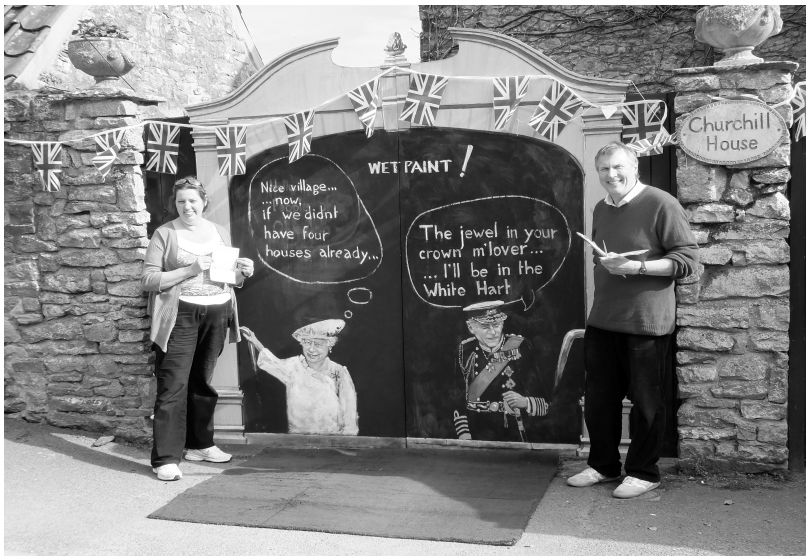 WET PAINT!
Nice village...
...now,
if we didnt
have four
houses already...
The jewel in your
crown m'lover...
... I'll be in the
White Hart
Churchill
House